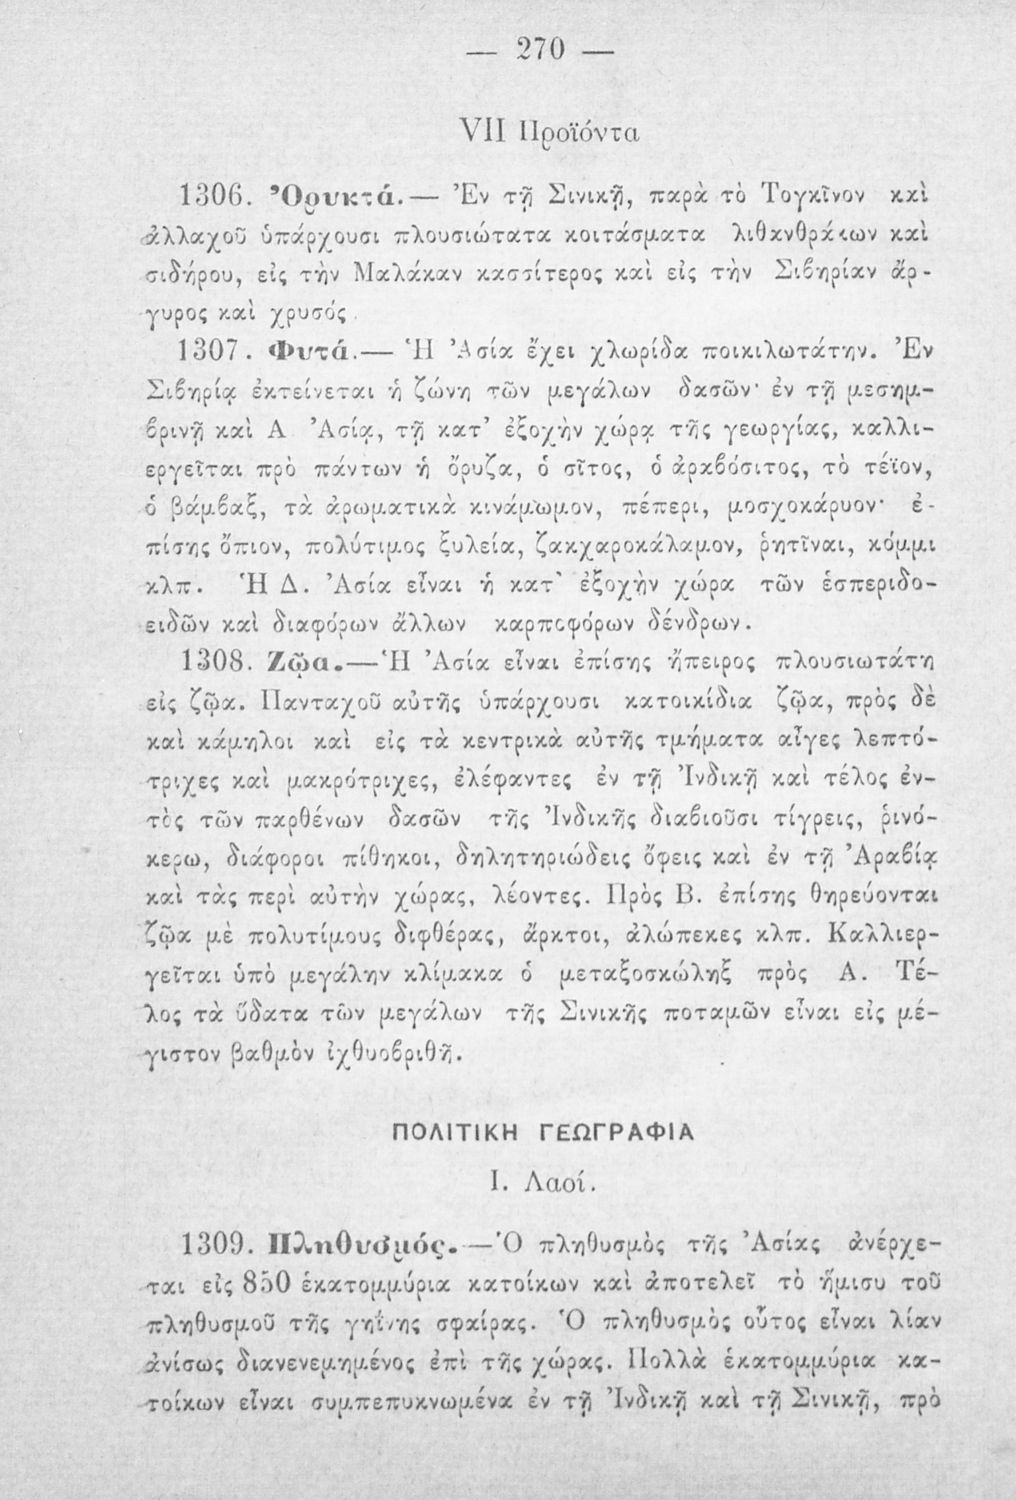 — 270 —
VII Προϊόντα
1306. Ὀρυκτά.— Ἐν τῇ Σινικῇ, παρὰ τὸ Τογκῖνον καὶ
ἀλλαχοῦ ὑπάρχουσι πλουσιώτατα κοιτάσματα λιθανθράκων καὶ
σιδήρου, εἰς τὴν Μαλάκαν κασσίτερος καὶ εἰς τὴν Σιβηρίαν ἄρ-
γυρος καὶ χρυσός.
1307. Φυτά.— Ἡ Ἀσία ἔχει χλωρίδα ποικιλωτάτην. Ἐν
Σιβηρίᾳ ἐκτείνεται ἡ ζώνη τῶν μεγάλων δασῶν· ἐν τῇ μεσημ-
βρινῇ καὶ Α Ἀσίᾳ, τῇ κατ’ ἐξοχὴν χώρᾳ τῆς γεωργίας, καλλι-
εργεῖται πρὸ πάντων ἡ ὄρυζα, ὁ σῖτος, ὁ ἀραβόσιτος, τὸ τέϊον,
ὁ βάμβαξ, τὰ ἀρωματικὰ κινάμωμον, πέπερι, μοσχοκάρυον· ἐ-
πίσης ὄπιον, πολύτιμος ξυλεία, ζακχαροκάλαμον, ῥητῖναι, κόμμι
κλπ. Ἡ Δ. Ἀσία εἶναι ἡ κατ’ ἐξοχὴν χώρα τῶν ἑσπεριδο-
ειδῶν καὶ διαφόρων ἄλλων καρποφόρων δένδρων.
1308. Ζῷα.—Ἡ Ἀσία εἶναι ἐπίσης ἤπειρος πλουσιωτάτη
εἰς ζῷα. Πανταχοῦ αὐτῆς ὑπάρχουσι κατοικίδια ζῷα, πρὸς δὲ
καὶ κάμηλοι καὶ εἰς τὰ κεντρικὰ αὐτῆς τμήματα αἶγες λεπτό-
τριχες καὶ μακρότριχες, ἐλέφαντες ἐν τῇ Ἰνδικῇ καὶ τέλος ἐν-
τὸς τῶν παρθένων δασῶν τῆς Ἰνδικῆς διαβιοῦσι τίγρεις, ῥινό-
κερω, διάφοροι πίθηκοι, δηλητηριώδεις ὄφεις καὶ ἐν τῇ Ἀραβίᾳ
καὶ τὰς περὶ αὐτὴν χώρας, λέοντες. Πρὸς Β. ἐπίσης θηρεύονται
ζῷα μὲ πολυτίμους διφθέρας, ἄρκτοι, ἀλώπεκες κλπ. Καλλιερ-
γεῖται ὑπὸ μεγάλην κλίμακα ὁ μεταξοσκώληξ πρὸς Α. Τέ-
λος τὰ ὕδατα τῶν μεγάλων τῆς Σινικῆς ποταμῶν εἶναι εἰς μέ-
γιστον βαθμὸν ἰχθυοβριθῆ.
ΠΟΛΙΤΙΚΗ ΓΕΩΓΡΑΦΙΑ
I. Λαοί.
1309. Πληθυσμός.—Ὁ πληθυσμὸς τῆς Ἀσίας ἀνέρχε-
ται εἰς 850 ἑκατομμύρια κατοίκων καὶ ἀποτελεῖ τὸ ἥμισυ τοῦ
πληθυσμοῦ τῆς γηΐνης σφαίρας. Ὁ πληθυσμὸς οὗτος εἶναι λίαν
ἀνίσως διανενεμημένος ἐπὶ τῆς χώρας. Πολλὰ ἑκατομμύρια κα-
τοίκων εἶναι συμπεπυκνωμένα ἐν τῇ Ἰνδικῇ καὶ τῇ Σινικῇ, πρὸ